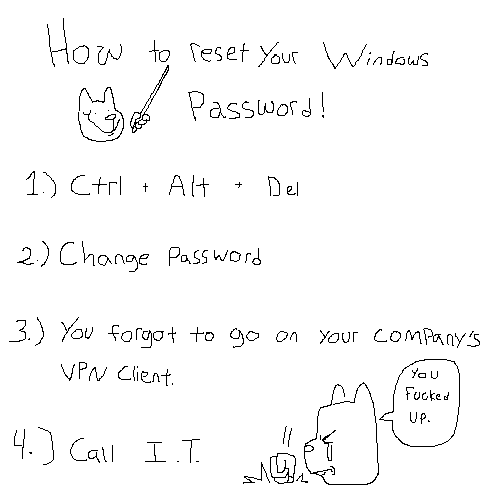 How to reset your Windows
Password!
1.) Ctrl + Alt + Del
2.) Change Password
3.) You forgot to go on your company's
VPN Client.
4.) Call I.T.
You
Fucked
UP.